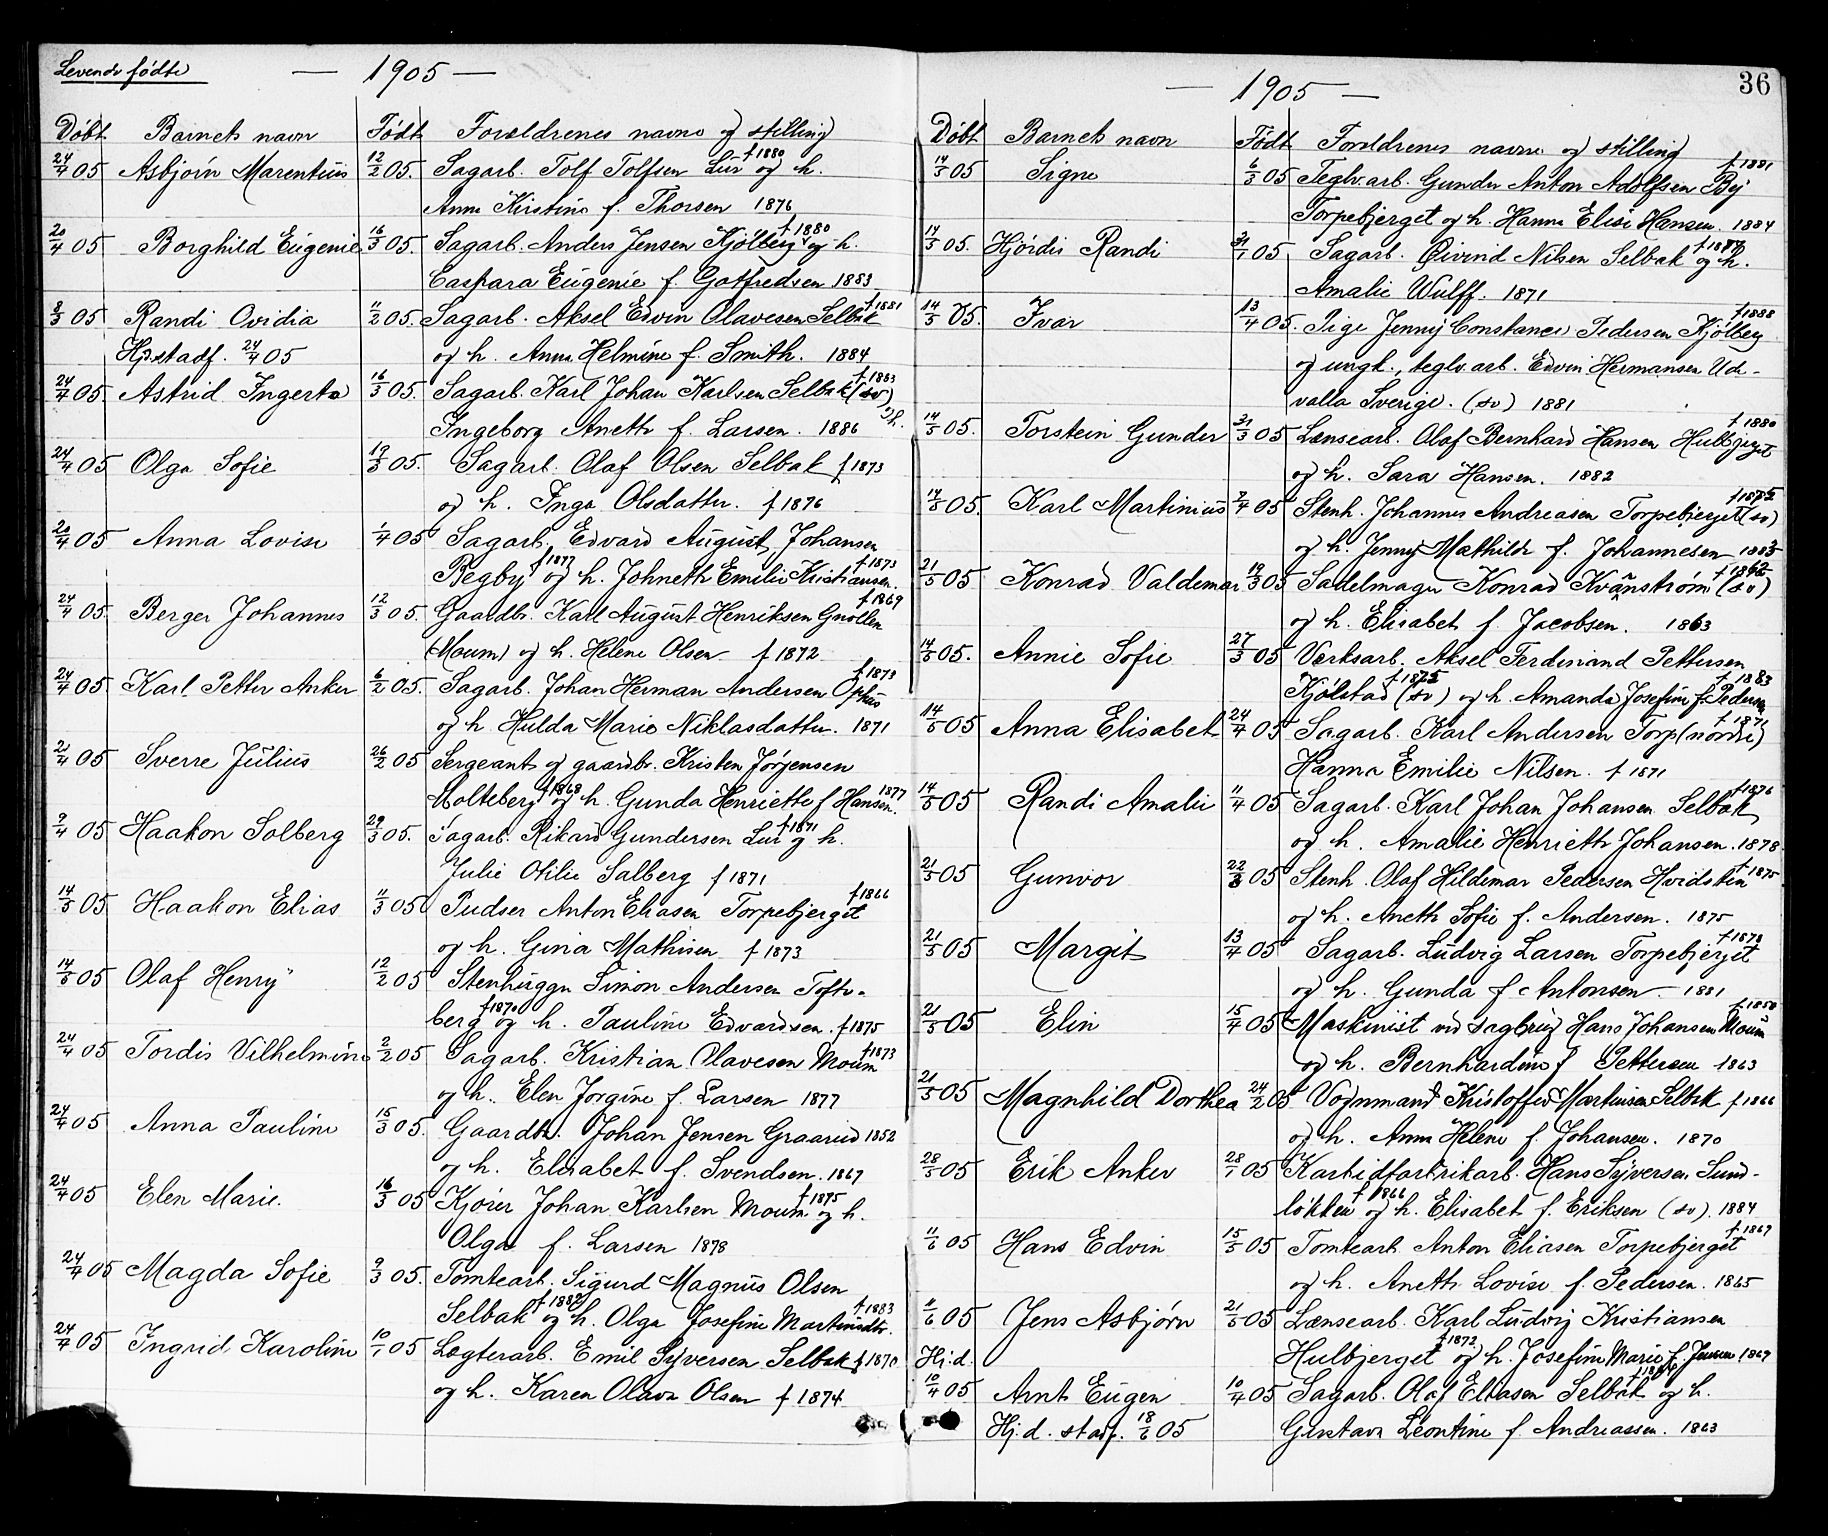 Levende fødte — 1905 —
Døbt Barnets navn Født Forældrenes navne og stilling
24/4 05 Asbjørn Marentius 12/2 05. Sagarb. Tolf Tolfsen Lur f 1880 og h.
Anne Kirstine f. Thorsen 1876
20/4 05 Borghild Eugenie 16/3 05. Sagarb. Anders Jensen Kjölberg f 1880 og h.
Caspara Eugenie f. Gotfredsen 1883
8/3 05 Randi Ovidia 11/2 05. Sagarb. Aksel Edvin Olavesen Selbak f 1881
Hj.stadf. 24/4 05 og h. Anna Helmine f. Smith. 1884
24/4 05. Astrid Ingerta 16/3 05. Sagarb. Karl Johan Karlsen Selbak (sv) f 1863
Ingeborg Aneth f. Larsen. 1886 og h.
24/4 05 Olga Sofie 19/3 05. Sagarb. Olaf Olsen Selbak f 1873
og h. Inga Olsdatter. f 1876
20/4 05 Anna Lovise 1/4 05 Sagarb. Edvard August Johansen
Begby f 1877 og h. Johneth Emilie Kristiansen. f 1873
24/4 05. Berger Johannes 12/3 05. Gaardbr. Karl August Henriksen Gnollen f 1869
(Moum) og h. Helene Olsen f 1872
24/4 05. Karl Petter Anker 6/2 05. Sagarb. Johan Herman Andersen Ophus f 1873
og h. Hulda Marie Niklasdatter. 1871
21/4 05 Sverre Julius 26/2 05 Sergeant og gaardbr. Kristen Jørgensen
Molteberg f 1868 og h. Gunda Henriette f Hansen. 1877
9/4 05 Haakon Solberg 29/3 05. Sagarb. Rikard Gundersen Lur f 1871 og h.
Julie Otilie Salberg f 1871
14/5 05 Haakon Elias 11/3 05 Pudser Anton Eliasen Torpebjerget f 1866
og h. Gina Mathisen f 1873
14/5 05 Olaf Henry 12/2 05 Stenhugger Simon Andersen Tofte-
berg f 1870 og h. Pauline Edvardsen. f 1875
24/4 05 Tordis Vilhelmine 2/2 05 Sagarb. Kristian Olavesen Moum f 1873
og h. Elen Jorgine f. Larsen 1877
24/4 05 Anna Pauline 15/3 05. Gaardbr. Johan Jensen Graarud 1852
og h. Elisabet f. Svendsen. 1867
24/4 05 Elen Marie. 16/3 05 Kjører Johan Karlsen Moum f 1875 og h.
Olga f. Larsen 1878
24/4 05 Magda Sofie 9/3 05. Tomtearb. Sigurd Magnus Olsen
Selbak f 1882 og h. Olga Josefine Martinsdtr. f 1883
24/4 05 Ingrid Karoline 10/1 05 Lægterarb. Emil Syversen Selbak f 1870
og h. Karen Olava Olsen f 1874
— 1905 — 36
Døbt Barnets navn Født Forældrenes navne og stilling
14/5 05 Signe 6/3 05 Teglv.arb. Gunder Anton Adolfsen Bej f 1881
Torpebjerget og h. Hanna Elise Hansen. 1884
14/5 05. Hjördis Randi 31/1 05 Sagarb. Øivind Nilsen Selbak og h.
Amalie Wulff. 1871
14/5 05. Ivar 13/4 05. Pige Jenny Constance Pedersen Kjölberg f 1888
og ungk., teglv.arb. Edvin Hermansen Ude-
valla Sverige. (sv) 1881
14/5 05. Torstein Gunder 31/3 05 Lænsearb. Olaf Bernhard Hansen Hulbjerget f 1880
og h. Sara Hansen. 1882
14/5 05. Karl Martinius 7/4 05 Stenh. Johannes Andreasen Torpebjerget (sv) f 1875
og h. Jenny Mathilde f. Johannesen 1883
21/5 05 Konrad Valdemar 19/3 05 Sadelmager Konrad Kvänström (sv) f 1862
og h. Elisabet f. Jacobsen. 1863
14/5 05. Annie Sofie 27/3 05 Verksarb. Aksel Ferdinand Pettersen
Kjölstad (sv) f 1875 og h. Amanda Josefine f. Pedersen f 1883
14/5 05 Anna Elisabet 24/4 05 Sagarb. Karl Andersen Torp (nordre) f 1871
Hanna Emilie Nilsen. f 1871
14/5 05 Randi Amalie 11/4 05 Sagarb. Karl Johan Johansen Selbak f 1876
og h. Amalie Henriette Johansen. 1878
21/5 05 Gunvor 22/3 05 Stenh. Olaf Hildemar Pedersen Hvidsten f 1875
og h. Aneth Sofie f. Andersen. 1875
21/5 05 Margit 13/4 05 Sagarb. Ludvig Larsen Torpebjerget f 1878
og h. Gunda f. Antonsen 1881
21/5 05 Elin 15/4 05 Maskinist ved sagbrug Hans Johansen Moum f 1858
og h. Bernhardine f Pettersen 1863
21/5 05 Magnhild Dorthea 24/2 05 Vognmand Kristoffer Martinsen Selbak f 1866
og h. Anna Helene f. Johansen. 1870
28/5 05 Erik Anker 28/1 05 Karbidfabrikarb. Hans Syversen Sund-
løkken f 1866 og h. Elisabet f. Eriksen (sv). 1884
11/6 05 Hans Edvin 15/5 05 Tomtearb. Anton Eliasen Torpebjerget f 1867
og h. Aneth Lovise f. Pedersen. 1865
11/6 05 Jens Asbjørn 21/5 05 Lænsearb. Karl Ludvig Kristiansen
Hj.d. Hulbjerget f 1872 og h. Josefine Marie f. Jensen 1869
10/4 05 Arnt Eugen 10/4 05 Sagarb. Olaf Eliasen Selbak og h.
Hj.d. stadf. 18/6 05 Gustava Leontine f. Andreassen. 1863